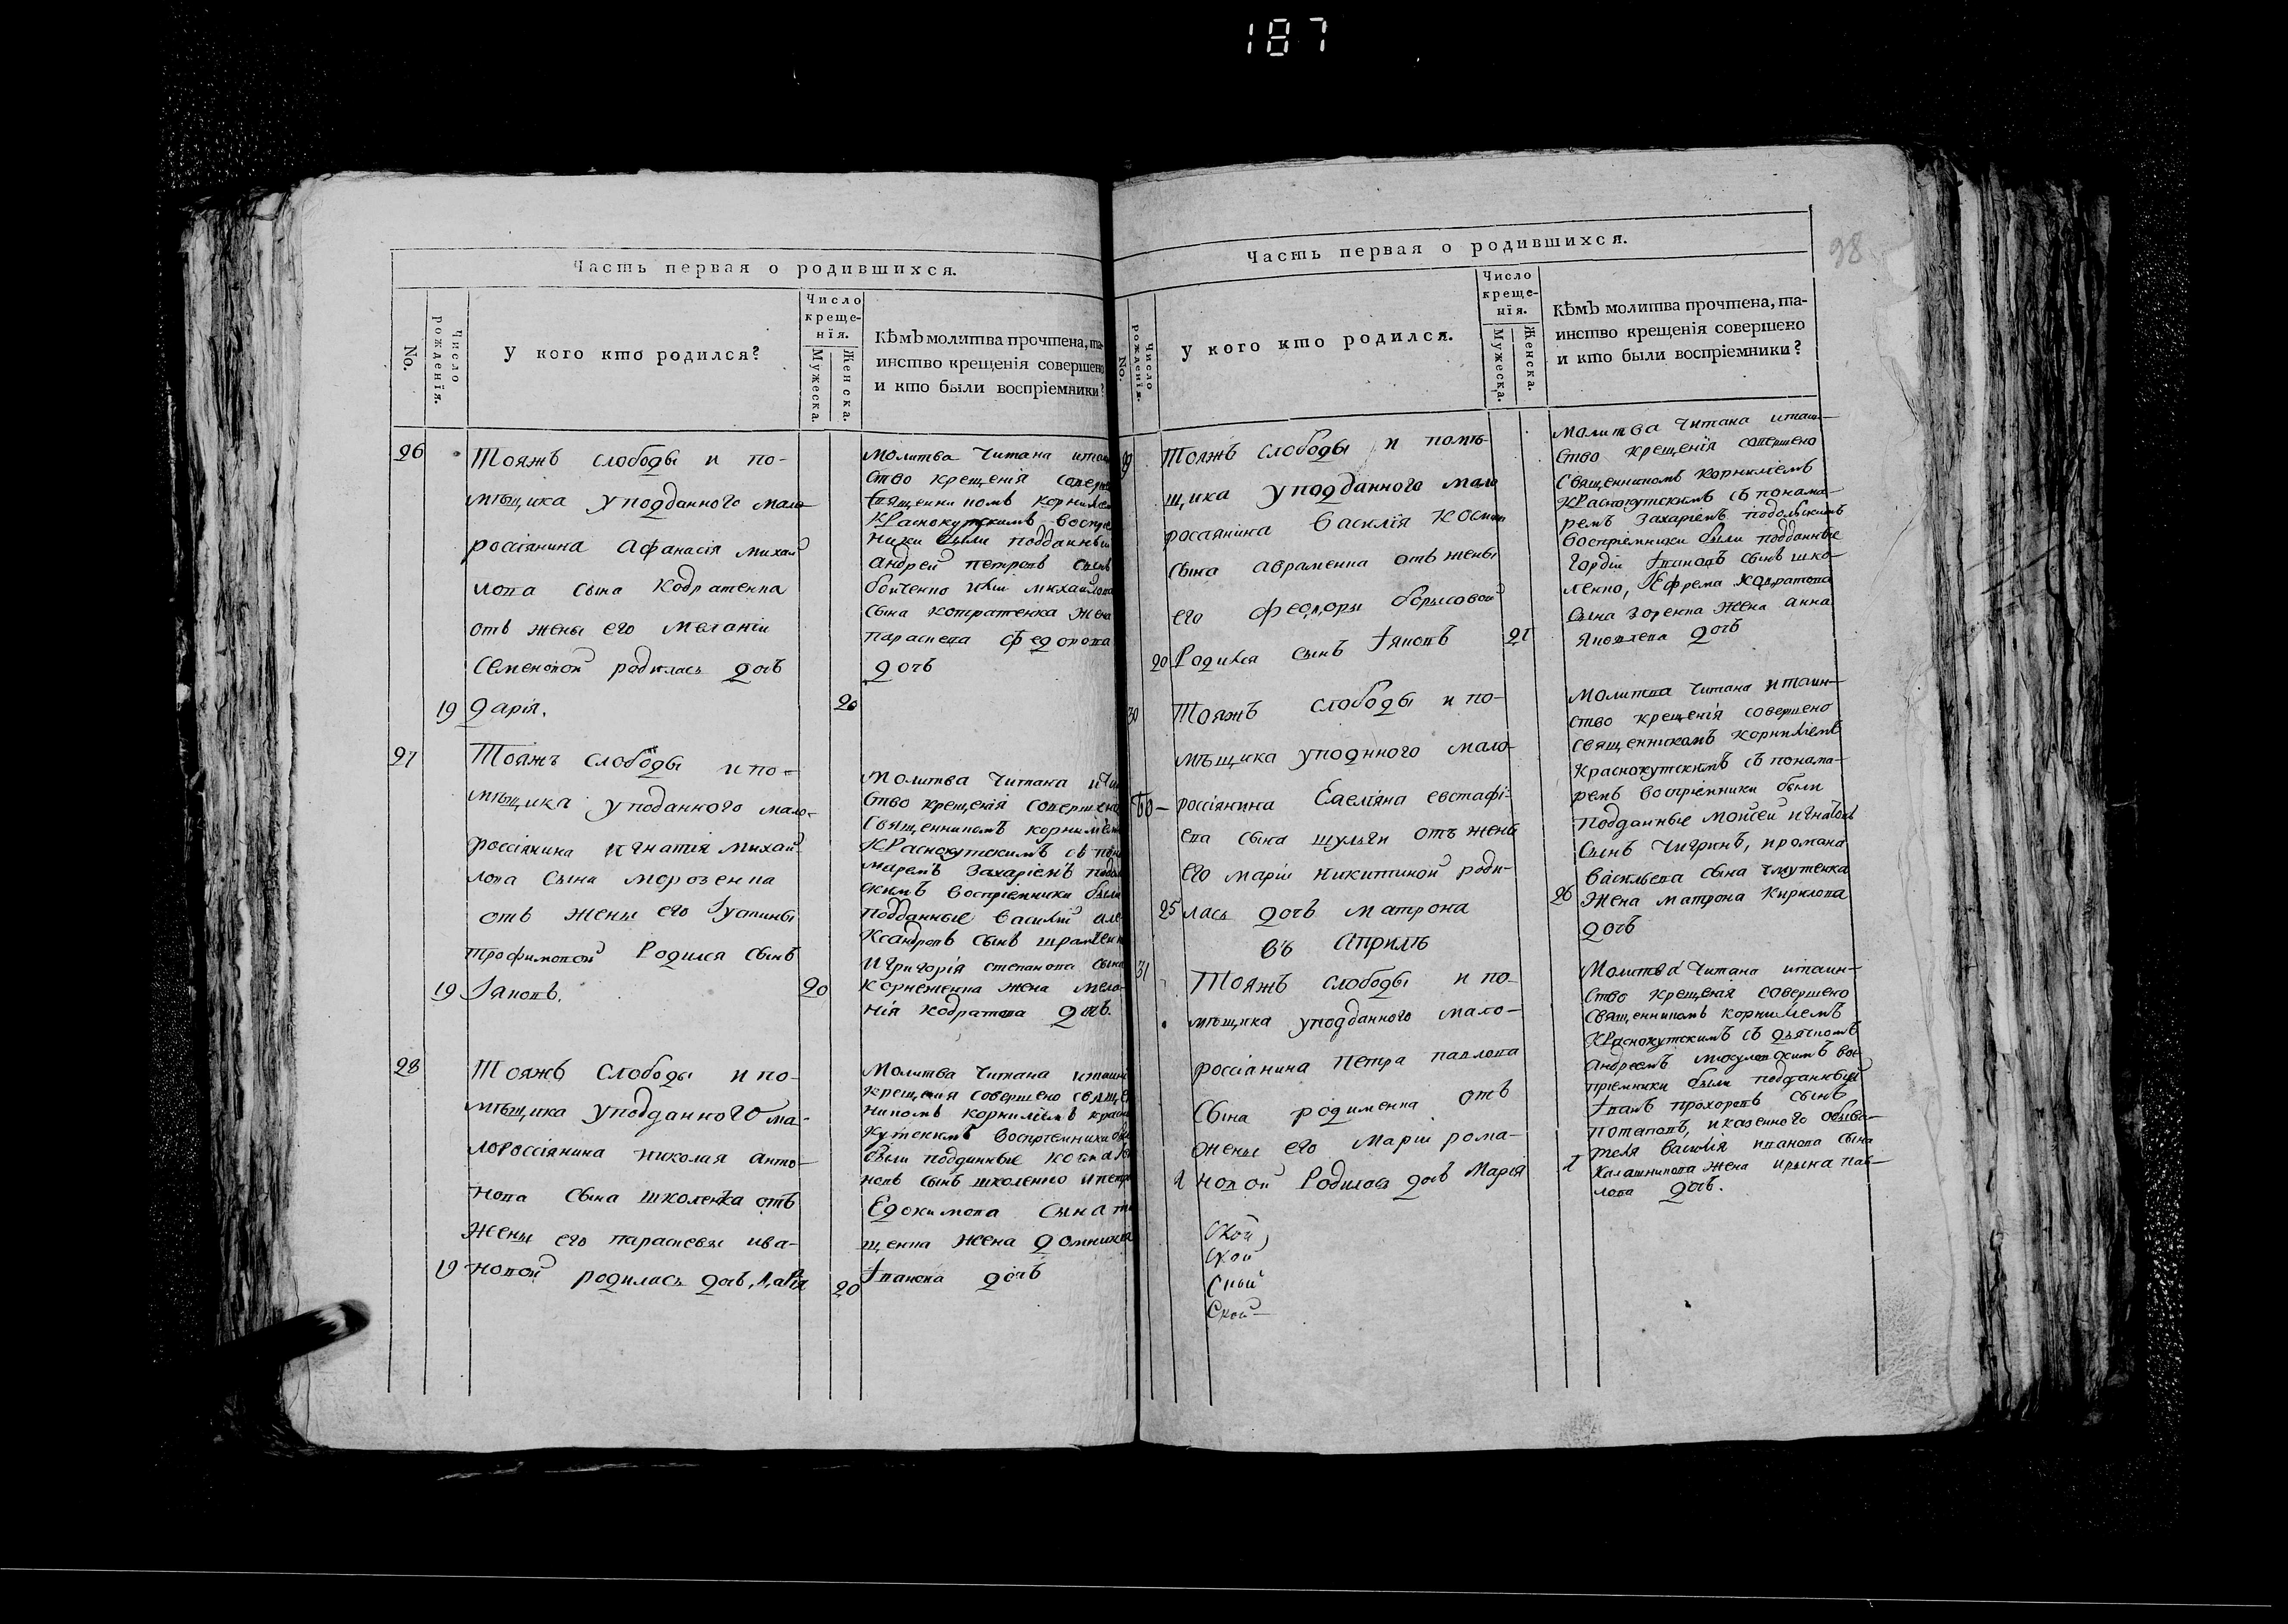 187
Часть первая о родившихся.
No.
Число рожденїя.
У кого кто родился?
Число
креще-
нїя.
Мужеска.
Женска.
Кѣмъ молитва прочтена, та-
инство крещенїя совершено
и кто были воспрїемники?
26
Тояжъ слободы и по-
мѣщика уподданного мало-
россіянина Афанасія михай
лова сына Кодратенка
отъ жены его меланіи
Семеновой родилась дочъ
19 дарія.
20
молитва читана итаин
ство крещенія совер
священникомъ корниліем
Краснокутскимъ воспріе
ники были подданный
андрей петровъ сынъ
бойченко иіи михайлова
сына котратенка жена
параскева федорова
дочъ
27
Тояжъ слободы ипо-
мѣщика уподанного мало-
россіянина игнатія михай-
лова сына морозенка
отъ жены его Іустины
трофимовой Родился сынъ
19 Іаковъ.
20
молитва читана итаин
ство крещенія совершено
Священникомъ корниліемъ
Краснокутскимъ съ поно
маремъ Захаріемъ подол
скимъ воспріемники были
подданные василій але
ксандровъ сынъ шрамченк
Игригорія степанова сына
корнеженка жена мела-
нія кодратова дочъ.
28
Тояжъ слободы ипо-
мѣщика уподданного ма-
лороссіянина николая анто-
нова сына школенка отъ
жены его параскевы ива-
19 новой родилась дочъ, Марія
20
Молитва читана итаинс
крещенія совершено священ
никомъ корниліемъ красно
кутскимъ воспріемники
были подданные
новъ сынъ школенко ипетра
Едокимова сына
щенка жена домникія
Іванова дочъ
98
Часть первая о родившихся.
No.
Число рожденїя.
У кого кто родился.
Число
креще-
нїя.
Мужеска.
Женска.
Кѣмъ молитва прочтена, та-
инство крещенїя совершено
и кто были воспрїемники?
Тояжъ слободы и помѣ-
щика уподданного мало
россіянина Василія косми
сына авраменка отъ жены
его федоры борисовой
20 Родился сынъ Іяковъ
21
Молитва читана итаин-
ство крещенія совершено
Священникомъ корниліемъ
Краснокутскимъ съ понама-
ремъ захаріемъ подольскимъ
воспріемники были подданные
Гордій Івановъ сынъ шко-
ленко, Ефрема Кодратова
сына зоренка жена анна
Яковлева дочъ
30
Тояжъ слободы и по-
мѣщика уподнного мало-
россіянина Емеліяна евстафі-
ева сына шульги отъ жены
его маріи никитиной роди-
25 лась дочъ матрона
26
Молитва читана итаин-
ство крещенія совершено
священникомъ корниліемъ
Краснокутскимъ съ понама-
ремъ воспріемники были
подданные мойсей игнатовъ
сынъ чигринъ, иромана
васильева сына чмутенка
жена матрона Кирилова
дочъ
въ Априлѣ
31
Тояжъ слободы и по-
мѣщика уподданного мало-
россіанина Петра павлова
сына родименка отъ
жены его Маріи рома-
1 новой Родилась дочъ Марія
1
Молитва читана итаин-
ство крещенія совершено
священникомъ корниліемъ
Краснокутскимъ съ дьячкомъ
андреемъ микуловскимъ вос
пріемники были подданный
Іванъ прохоровъ сынъ
потаповъ, иказенного обыва-
теля василія иванова сына
калашникова жена ирина пав-
лова дочъ.
Ской
Ской
Ской